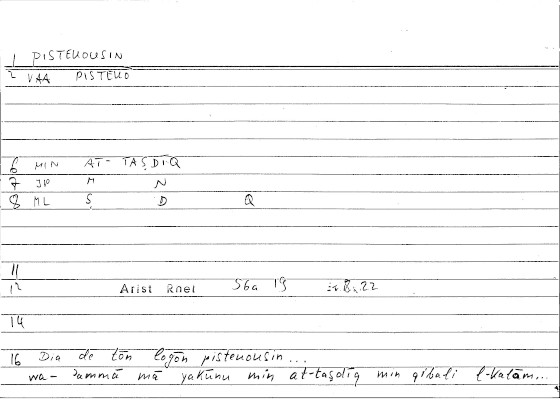 1 PISTEUOUSIN
2 VAA PISTEUO
6 MIN AT-TAṢDĪQ
7 JP M N
8 ML Ṣ D Q
11
12 Arist Rhet 56a 19 8.22
14
16 Dia de tōn logōn pisteuousin...
wa-ʾammā mā yakūnu min at-taṣdīq min qibali l-kalām...